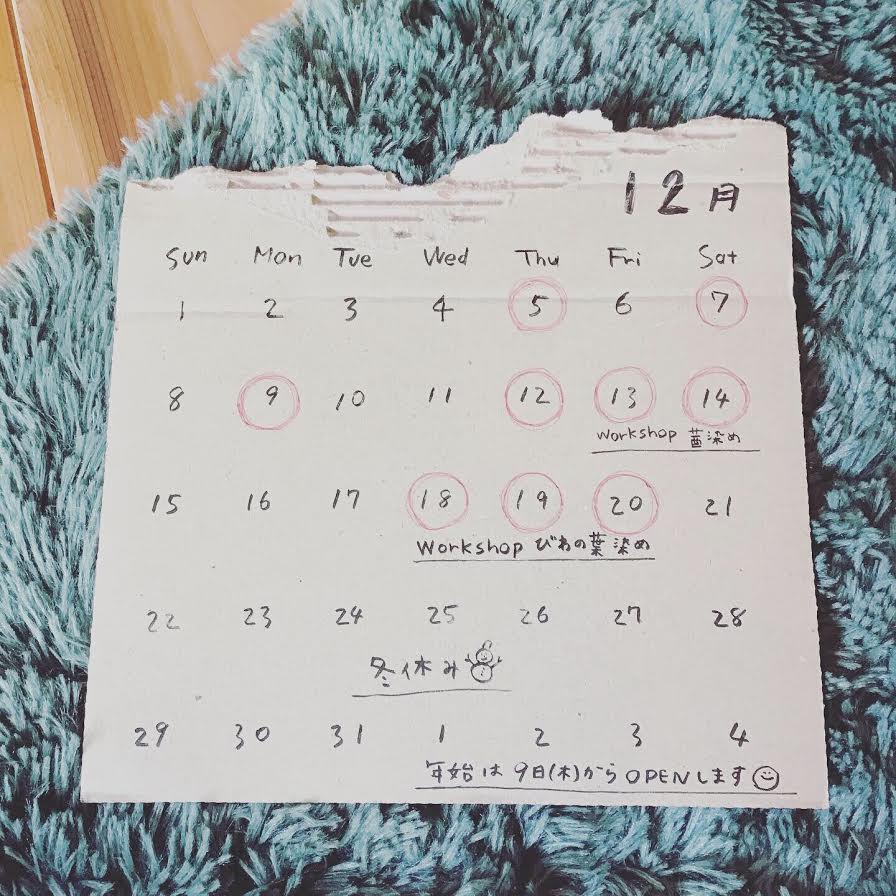 12月
Sun Mon Tue Wed Thu Fri Sat
1 2 3 4 5 6 7
8 9 10 11 12 13 14
Workshop 茜染め
15 16 17 18 19 20 21
Workshop びわの葉染め
22 23 24 25 26 27 28
冬休み
29 30 31 1 2 3 4
年始は9日(木)からOPENします